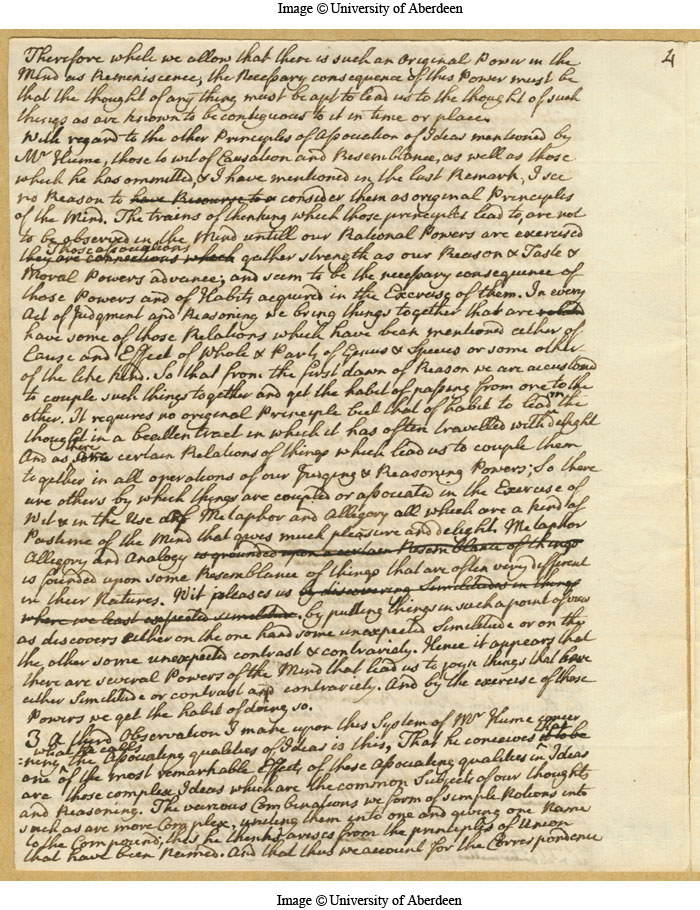 Image © University of Aberdeen
4
Therefore while we allow that there is such an Original Power in the
Mind as Reminiscence, the Necessary consequence of this Power must be
that the thought of any thing must be apt to lead us to the thought of such
things as are known to be contiguous to it in time or place.
With regard to the other Principles of Association of Ideas mentioned by
Mr Hume, those to wit of Causation and Resemblance, as well as those
which he has ommitted, & I have mentioned in the last Remark, I see
no Reason to have Recourse to consider them as original Principles
of the Mind. The trains of thinking which those principles lead to, are not
to be observed in the Mind untill our Rational Powers are exercised
Those associations
they are connections which gather strength as our Reason & Taste &
Moral Powers advance; and seem to be the necessary consequence of
those Powers and of Habits acquired in the Exercise of them. In every
Act of Judgment and Reasoning we bring things together that are
have some of those Relations which have been mentioned either of
Cause and Effect of Whole & Part, of Genus & Species or some other
of the like kind. So that from the first dawn of Reason we are accustomd
to couple such things together and get the habit of passing from one to the
other. It requires no original Principle but that of habit to lead on the
thought in a beaten tract in which it has often travelled with delight
there
And as some certain Relations of things which lead us to couple them
together in all operations of our Judging & Reasoning Powers; So there
are others by which things are coupled or associated in the Exercise of
Wit & in the Use of Metaphor and Allegory all which are a kind of
Pastime of the Mind that gives much pleasure and delight. Metaphor
Allegory and Analogy is grounded upon a certain Resemblance of things
is founded upon some Resemblance of things that are often very different
in their Natures. Wit pleases us by discovering Similitudes in things
where we least expected similitude. by putting things in such a point of view
as discovers either on the one hand some unexpected Similitude or on the
the other some unexpected contrast & contrariety. Hence it appears that
there are several Powers of the Mind that lead us to joyn things that have
either Similitude or contrast and contrariety. And by the exercise of those
Powers we get the habit of doing so.
3 a third Observation I make upon this System of Mr Hume concer
what he calls That
=ning the Associating qualities of Ideas is this, That he conceives it to be
one of the most remarkable Effects of these Associating qualities in Ideas
are those complex Ideas which are the common Subjects of our thoughts
and Reasoning. The various Combinations we form of simple Notions into
such as are more Complex, uniting them into one and giving one Name
to the Compound; this he thinks arises from the principles of Union
that have been Named. And that thus we account for the Correspondence
Image © University of Aberdeen